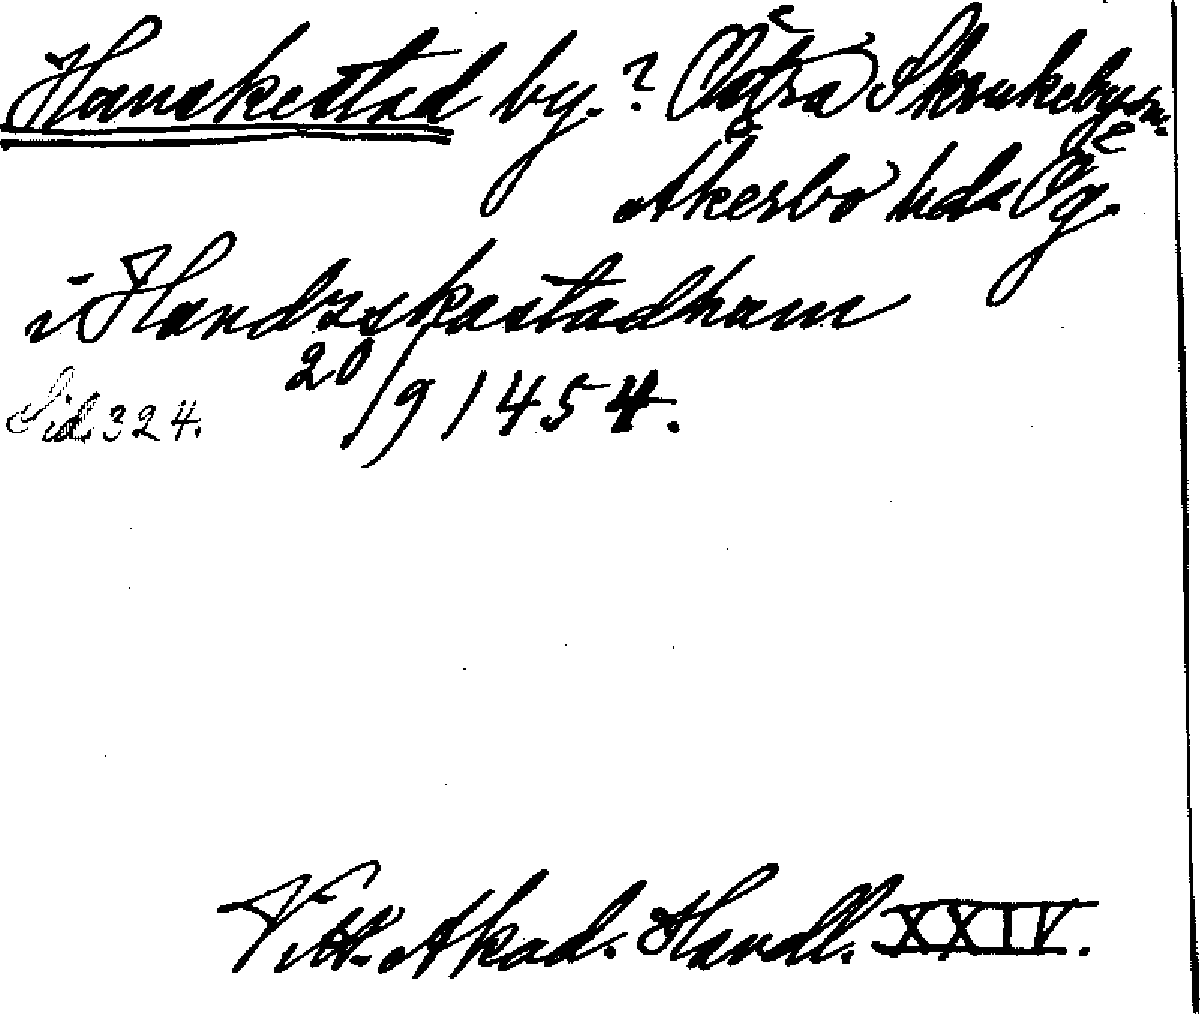 Hanskestad by.? Östra Skrukeby sn.
Åkerbo hd. Ög.
i Handzskastadhum
20/9 1454.
Sid. 324.
Vitt. Akad. Handl. XXIV.